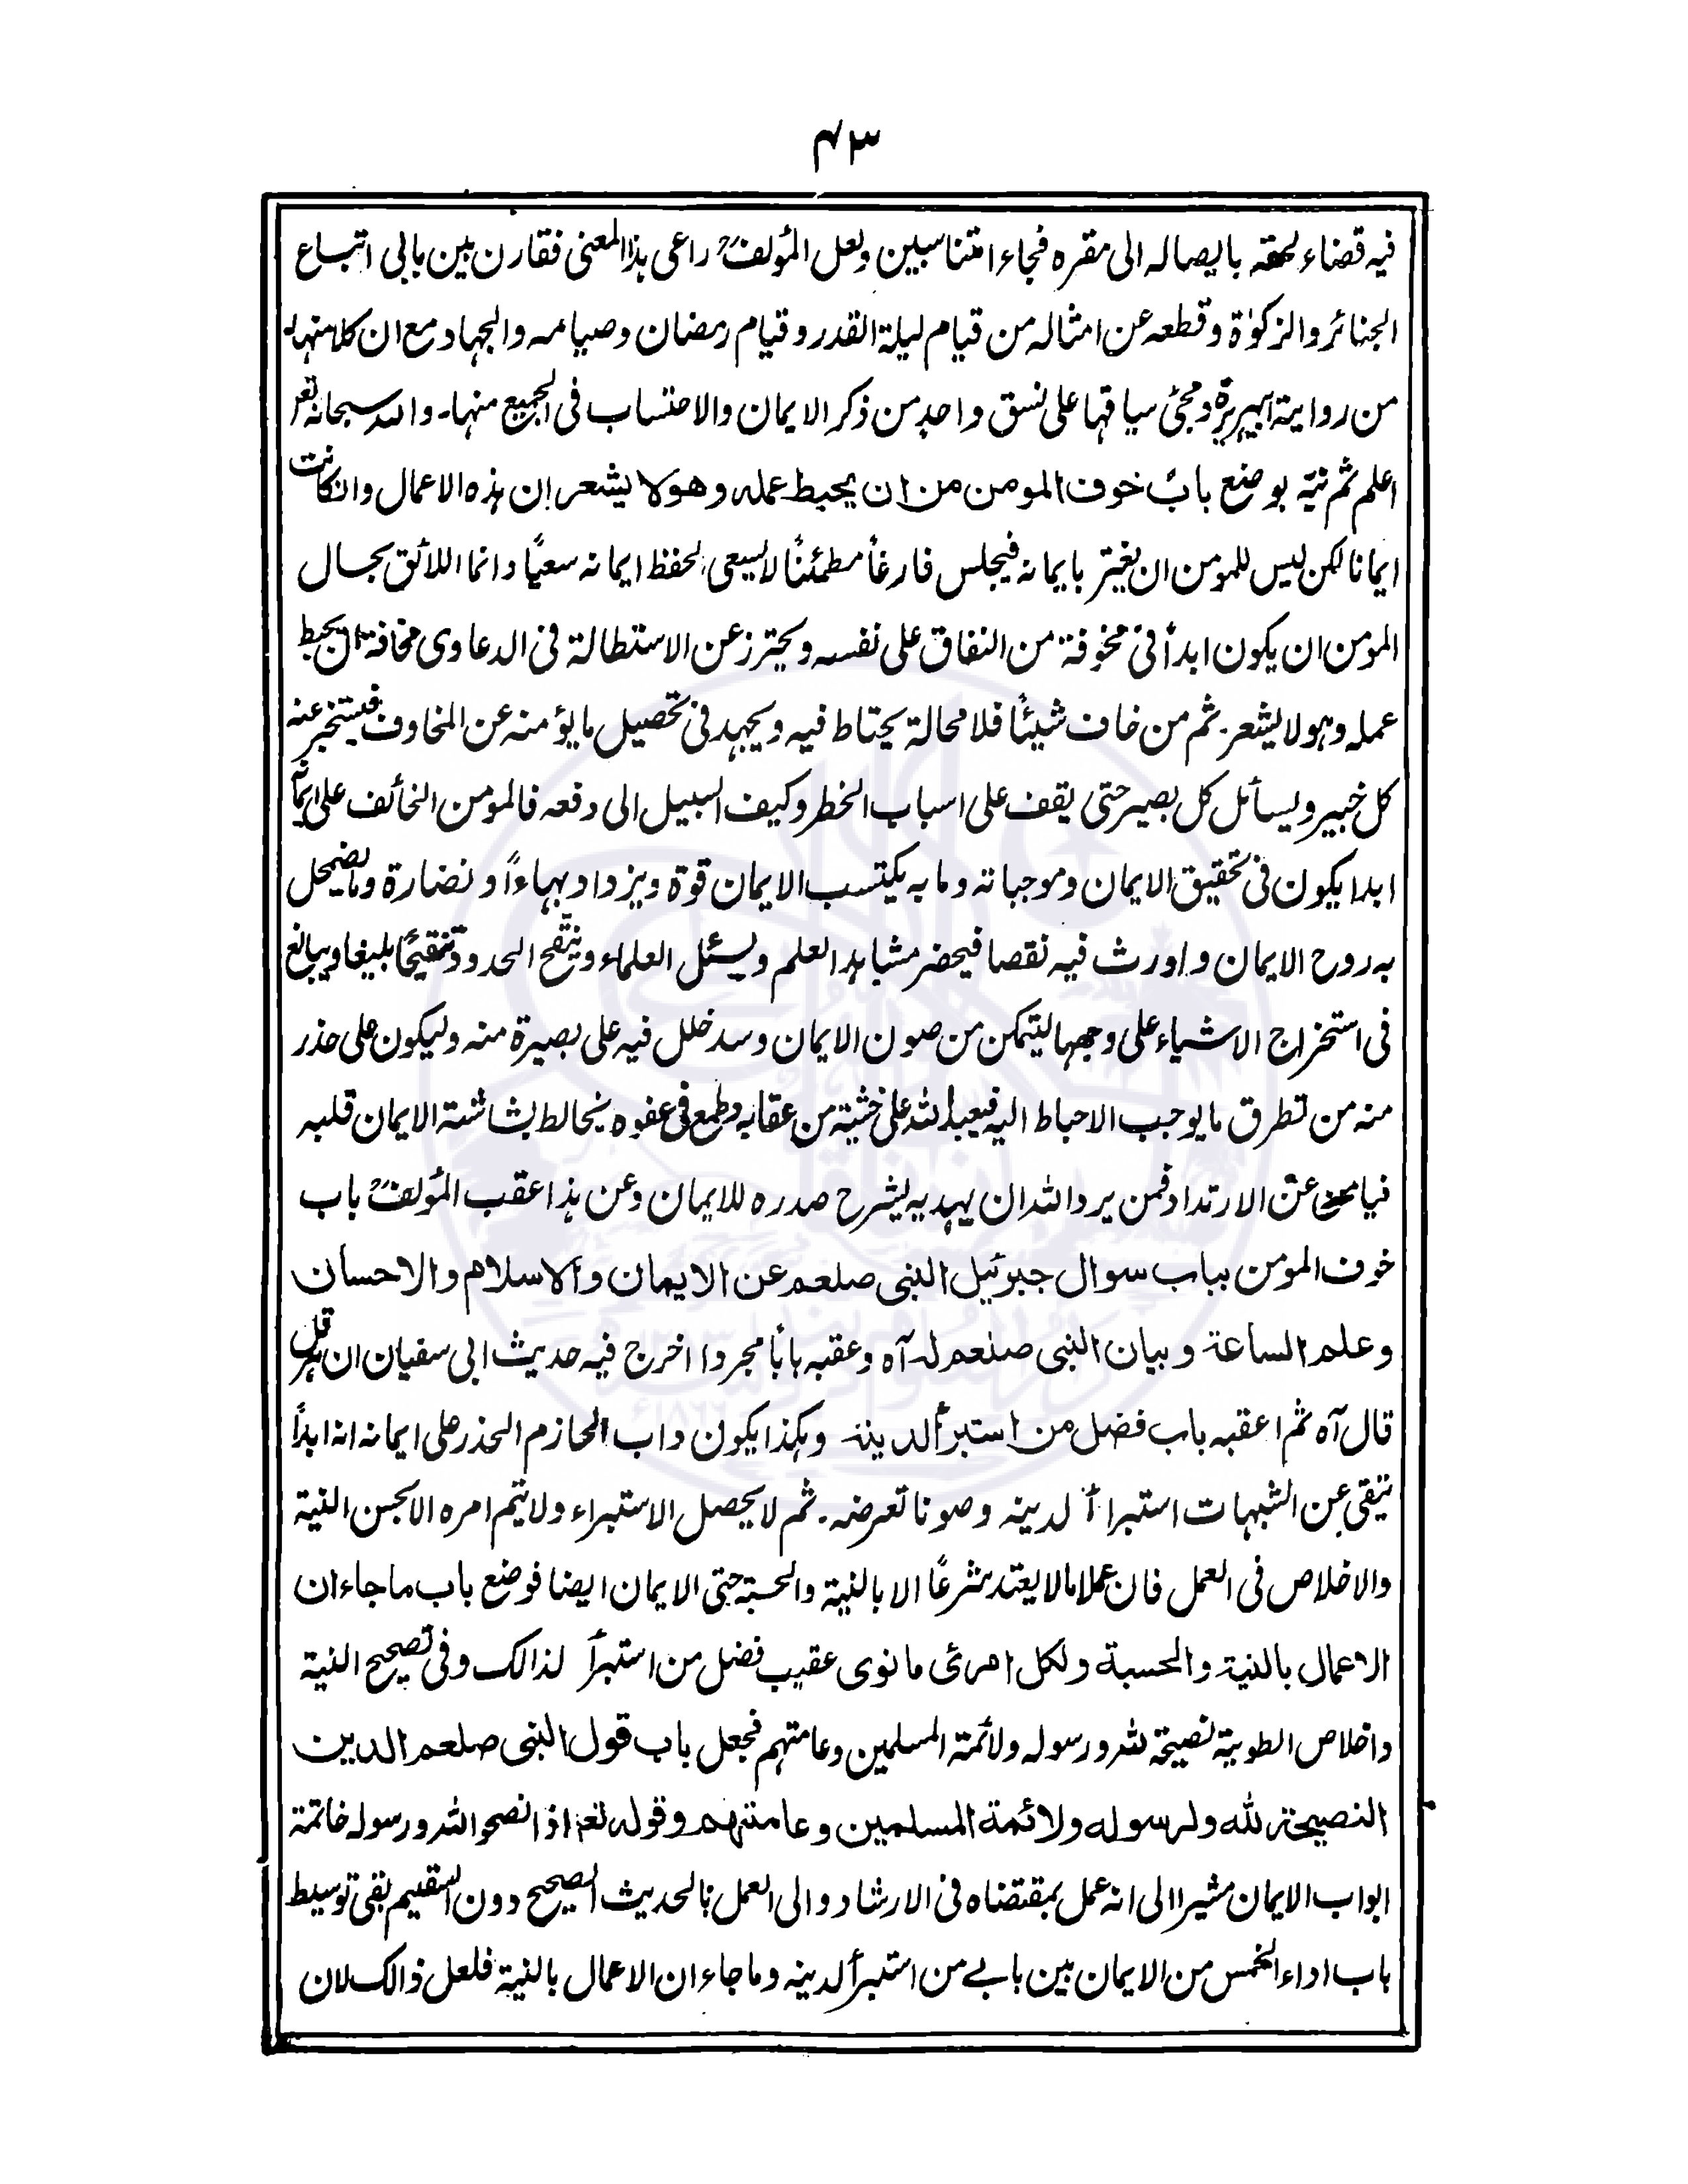 ۴۳
فيه قضاء لحقه بايصاله الى مقره فجاءا متناسبين ولعل المؤلفؒ راعى هذا المعنى فقارن بين بابى اتباع
الجنائز والزكوٰة وقطعه عن امثاله من قيام ليلة القدر وقيام رمضان وصيامه والجهاد مع ان كلا منها
من رواية ابيهريرة ومجئ سياقها على نسق واحد من ذكر الايمان والاحتساب فى الجميع منها۔ والله سبحانه تعر
اعلم ثم نبّه بوضع بابُ خوف المومن من ان يحبط عمله وهو لا يشعر ان هذه الاعمال وانكانت
ايمانا لكن ليس للمومن ان يغتر بايمانه فيجلس فارغاً مطمئناً لا يسعى لحفظ ايمانه سعيًا وانما اللائق بحال
المومن ان يكون ابداً فى مخوفة من النفاق على نفسه ويحترز عن الاستطالة فى الدعاوى مخافة ان يحبط
عمله وهو لا يشعر۔ ثم من خاف شيئاً فلا محالة يحتاط فيه ويجهد فى تحصيل ما يؤمنه عن المخاوف فيستخبر عنه
كل خبير ويسأل كل بصير حتى يقف على اسباب الخطر وكيف السبيل الى دفعه فالمومن الخائف على ايمانه
ابدا يكون فى تحقيق الايمان وموجباته وما به يكتسب الايمان قوة ويزداد بهاءاً ونضارة وما يضمحل
به روح الايمان واورث فيه نقصا فيحضر مشاهد العلم ويسئل العلماء وينقّح الحدود تنقيحًا بليغا ويبالغ
فى استخراج الاشياء على وجهها ليتمكن من صون الايمان وسد خلل فيه على بصيرة منه وليكون على حذر
منه من تطرق ما يوجب الاحباط اليه فيعبد الله على خشية من عقابه وطمع فى عفوه يخالط بشاشة الايمان قلبه
فيامن عن الارتداد فمن يرد الله ان يهديه يشرح صدره للايمان وعن هذا عقب المؤلفؒ باب
خوف المومن بباب سوال جبرئيل النبى صلعم عن الايمان والاسلام والاحسان
وعلم الساعة وبيان النبى صلعم له آه وعقبه باباً مجردا اخرج فيه حديث ابى سفيان ان هرقل
قال آه ثم اعقبه باب فضل من استبرأ لدينه وهكذا يكون داب الحازم الحذر على ايمانه انه ابداً
يتقى عن الشبهات استبراأً لدينه وصونا لعرضه۔ ثم لا يحصل الاستبراء ولا يتم امره الا بحسن النية
والاخلاص فى العمل فان عملا ما لا يعتد شرعًا الا بالنية والحسبة حتى الايمان ايضا فوضع باب ما جاء ان
الاعمال بالنية والحسبة ولكل امرئ ما نوى عقيب فضل من استبرأ لذالك وفى تصحيح النية
واخلاص الطوية نصيحة لله ورسوله ولائمة المسلمين وعامتهم فجعل باب قول النبى صلعم الدين
النصيحة لله ولرسوله ولائمة المسلمين وعامتهم وقوله تعر اذا نصحوا الله ورسوله خاتمة
ابواب الايمان مشيرا الى انه عمل بمقتضاه فى الارشاد والى العمل بالحديث الصحيح دون السقيم بقى توسيط
باب اداء الخمس من الايمان بين بابے من استبرأ لدينه وما جاء ان الاعمال بالنية فلعل ذالك لان